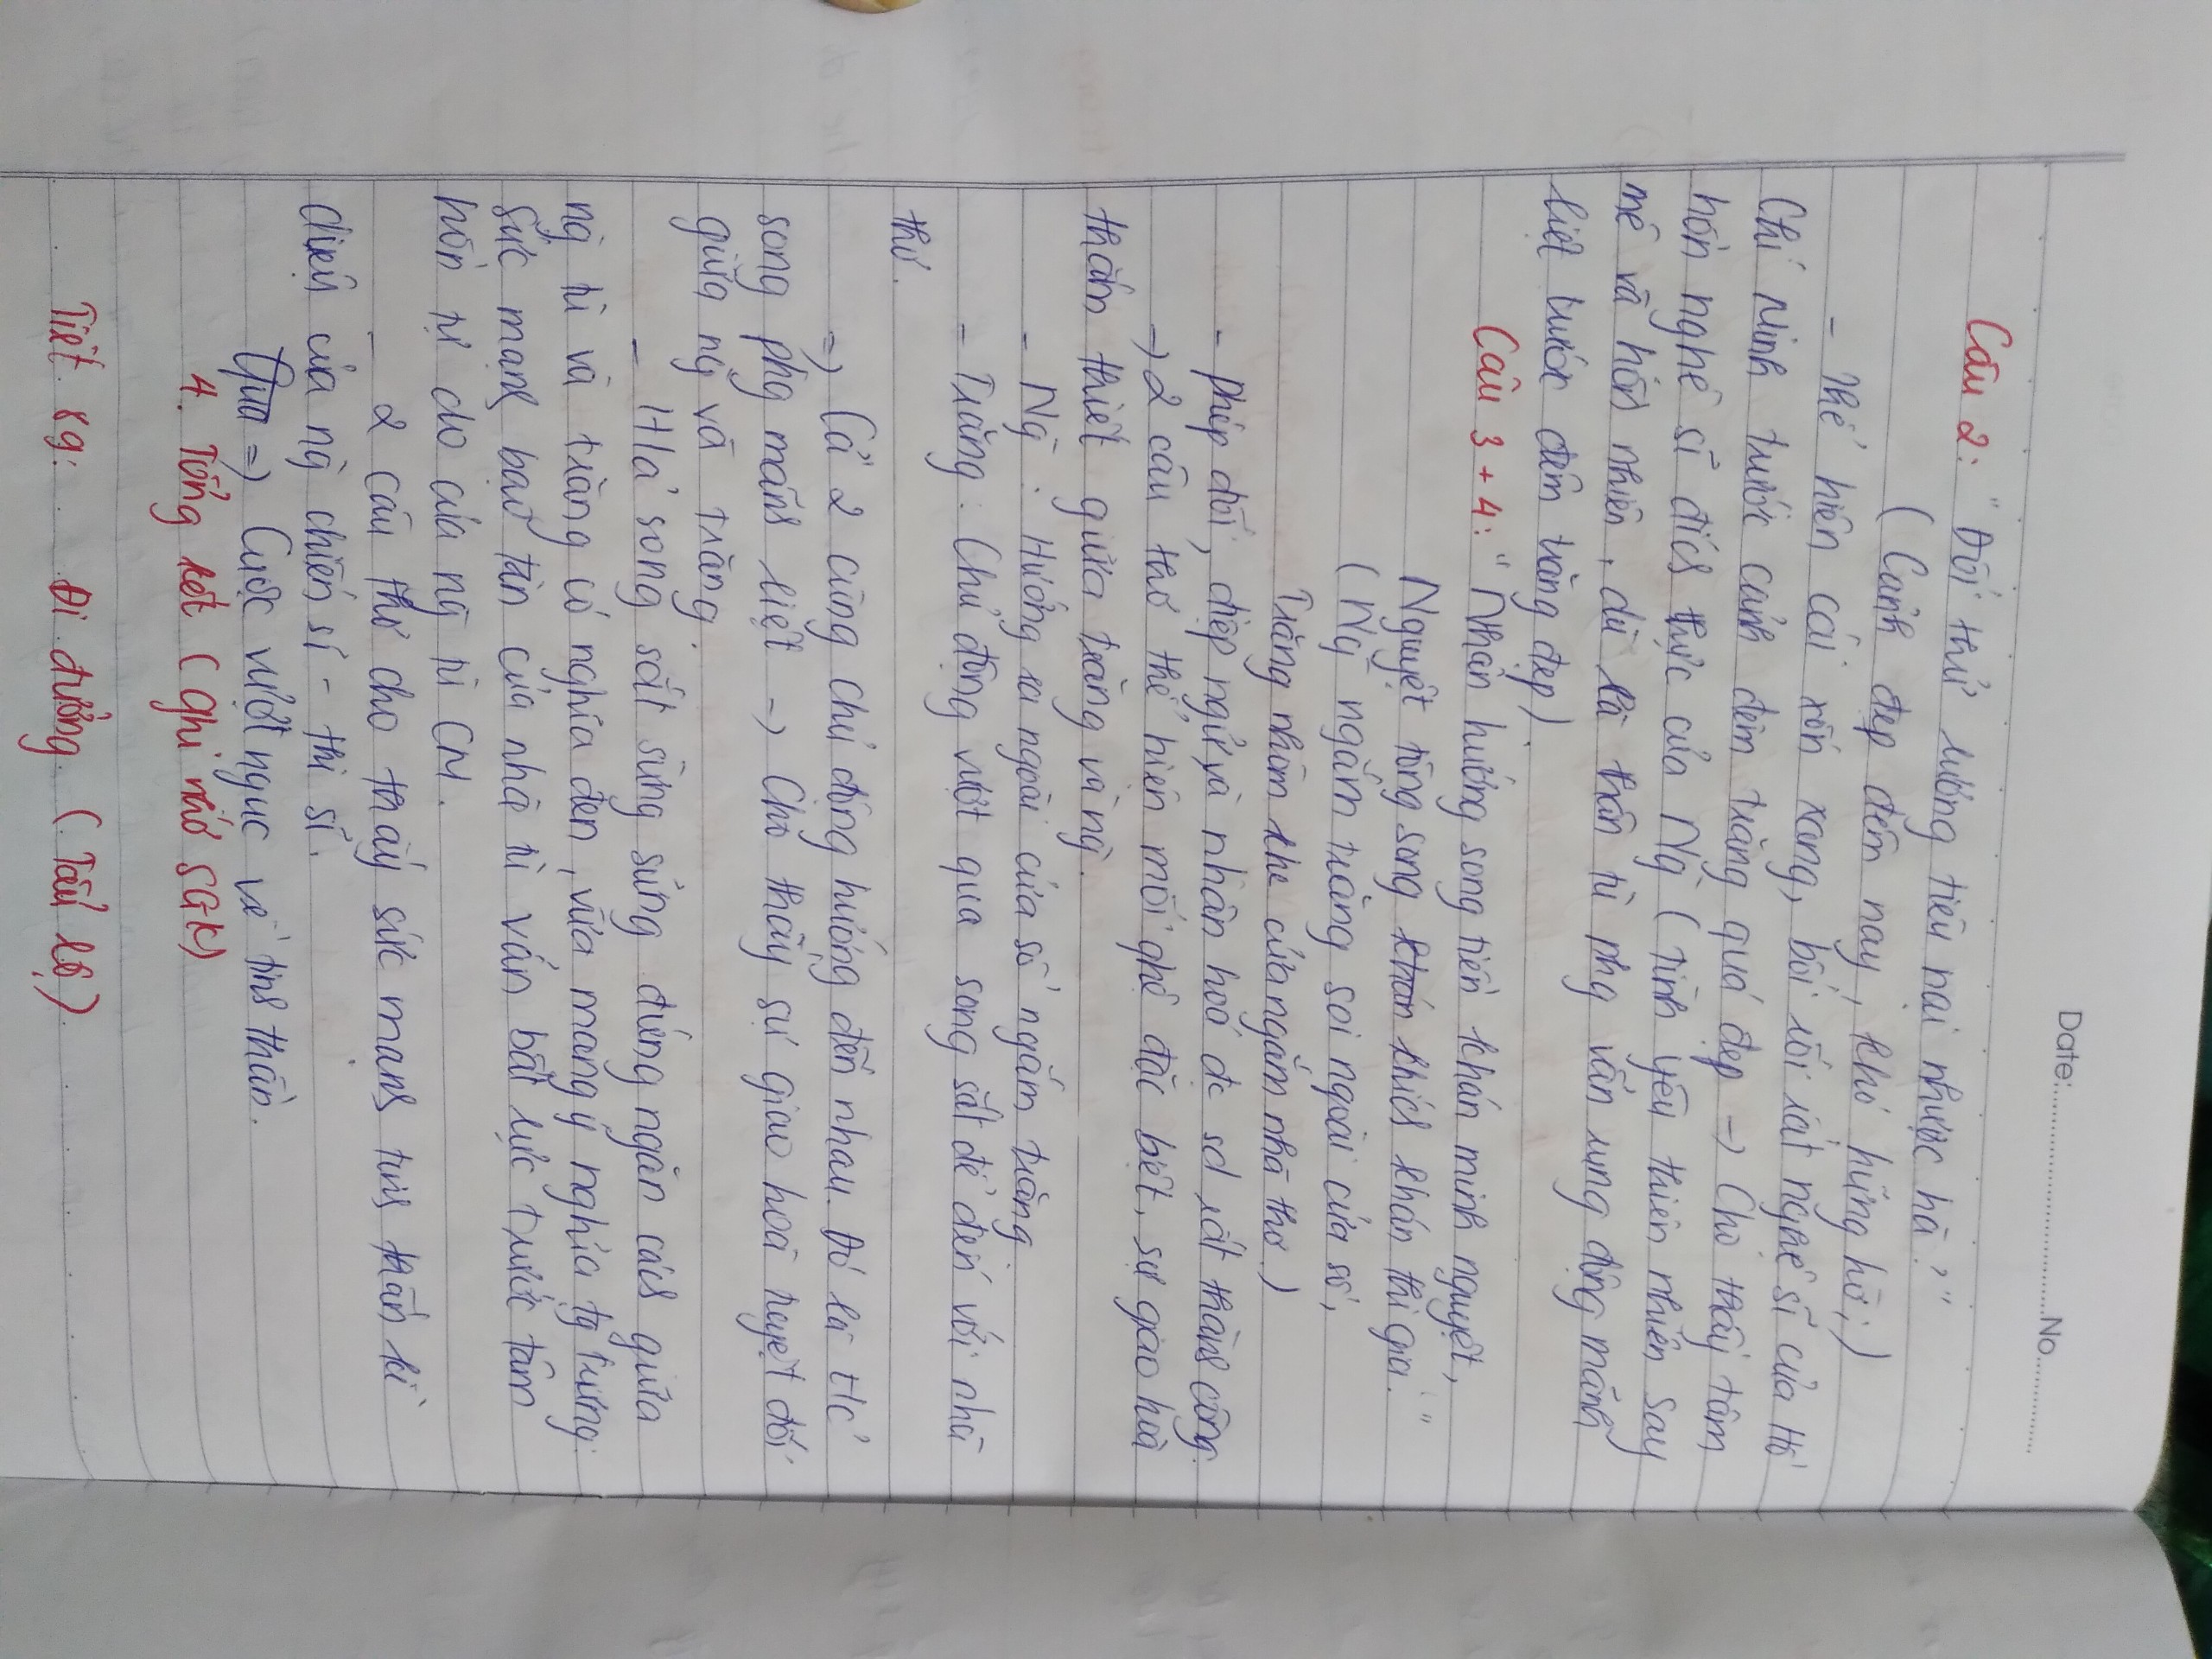 Date:..............................No..............
Câu 2: "Đối thử lương tiêu nại nhược hà?"
(Cảnh đẹp đêm nay, khó hững hờ;)
- Thể hiện cái xốn xang, bối rối rất nghệ sĩ của Hồ
Chí Minh trước cảnh đêm trăng quá đẹp -> Cho thấy tâm
hồn nghệ sĩ đích thực của Ng` (tình yêu thiên nhiên say
mê và hồn nhiên, dù là thân tù phg vẫn rung động mãnh
liệt trước đêm trăng đẹp).
Câu 3 + 4: "Nhân hướng song tiền khán minh nguyệt,
Nguyệt tòng song khán khích khán thi gia."
(Ng` ngắm trăng soi ngoài cửa sổ,
Trăng nhòm khe cửa ngắm nhà thơ.)
- Phép đối, điệp ngữ và nhân hoá đc sd rất thành công.
-> 2 câu thơ thể hiện mối qhệ đặc biệt, sự giao hoà
thắm thiết giữa trăng và ng`.
- Ng`: Hướng ra ngoài cửa sổ ngắm trăng.
- Trăng: Chủ động vượt qua song sắt để đến với nhà
thơ.
=> Cả 2 cùng chủ động hướng đến nhau. Đó là t/c
song phg mãnh liệt -> Cho thấy sự giao hoà tuyệt đối
giữa ng` và trăng.
- H/ả song sắt sừng sững đứng ngăn cách giữa
ng` tù và trăng có nghĩa đen, vừa mang ý nghĩa tg trưng:
Sức mạnh bạo tàn của nhà tù vẫn bất lực trước tâm
hồn tự do của ng` tù CM.
- 2 câu thơ cho thấy sức mạnh tinh thần kì
diệu của ng` chiến sĩ - thi sĩ.
Qua => Cuộc vượt ngục về tinh thần.
4. Tổng kết (Ghi nhớ SGK)
Tiết 89: Đi đường (Tẩu lộ)